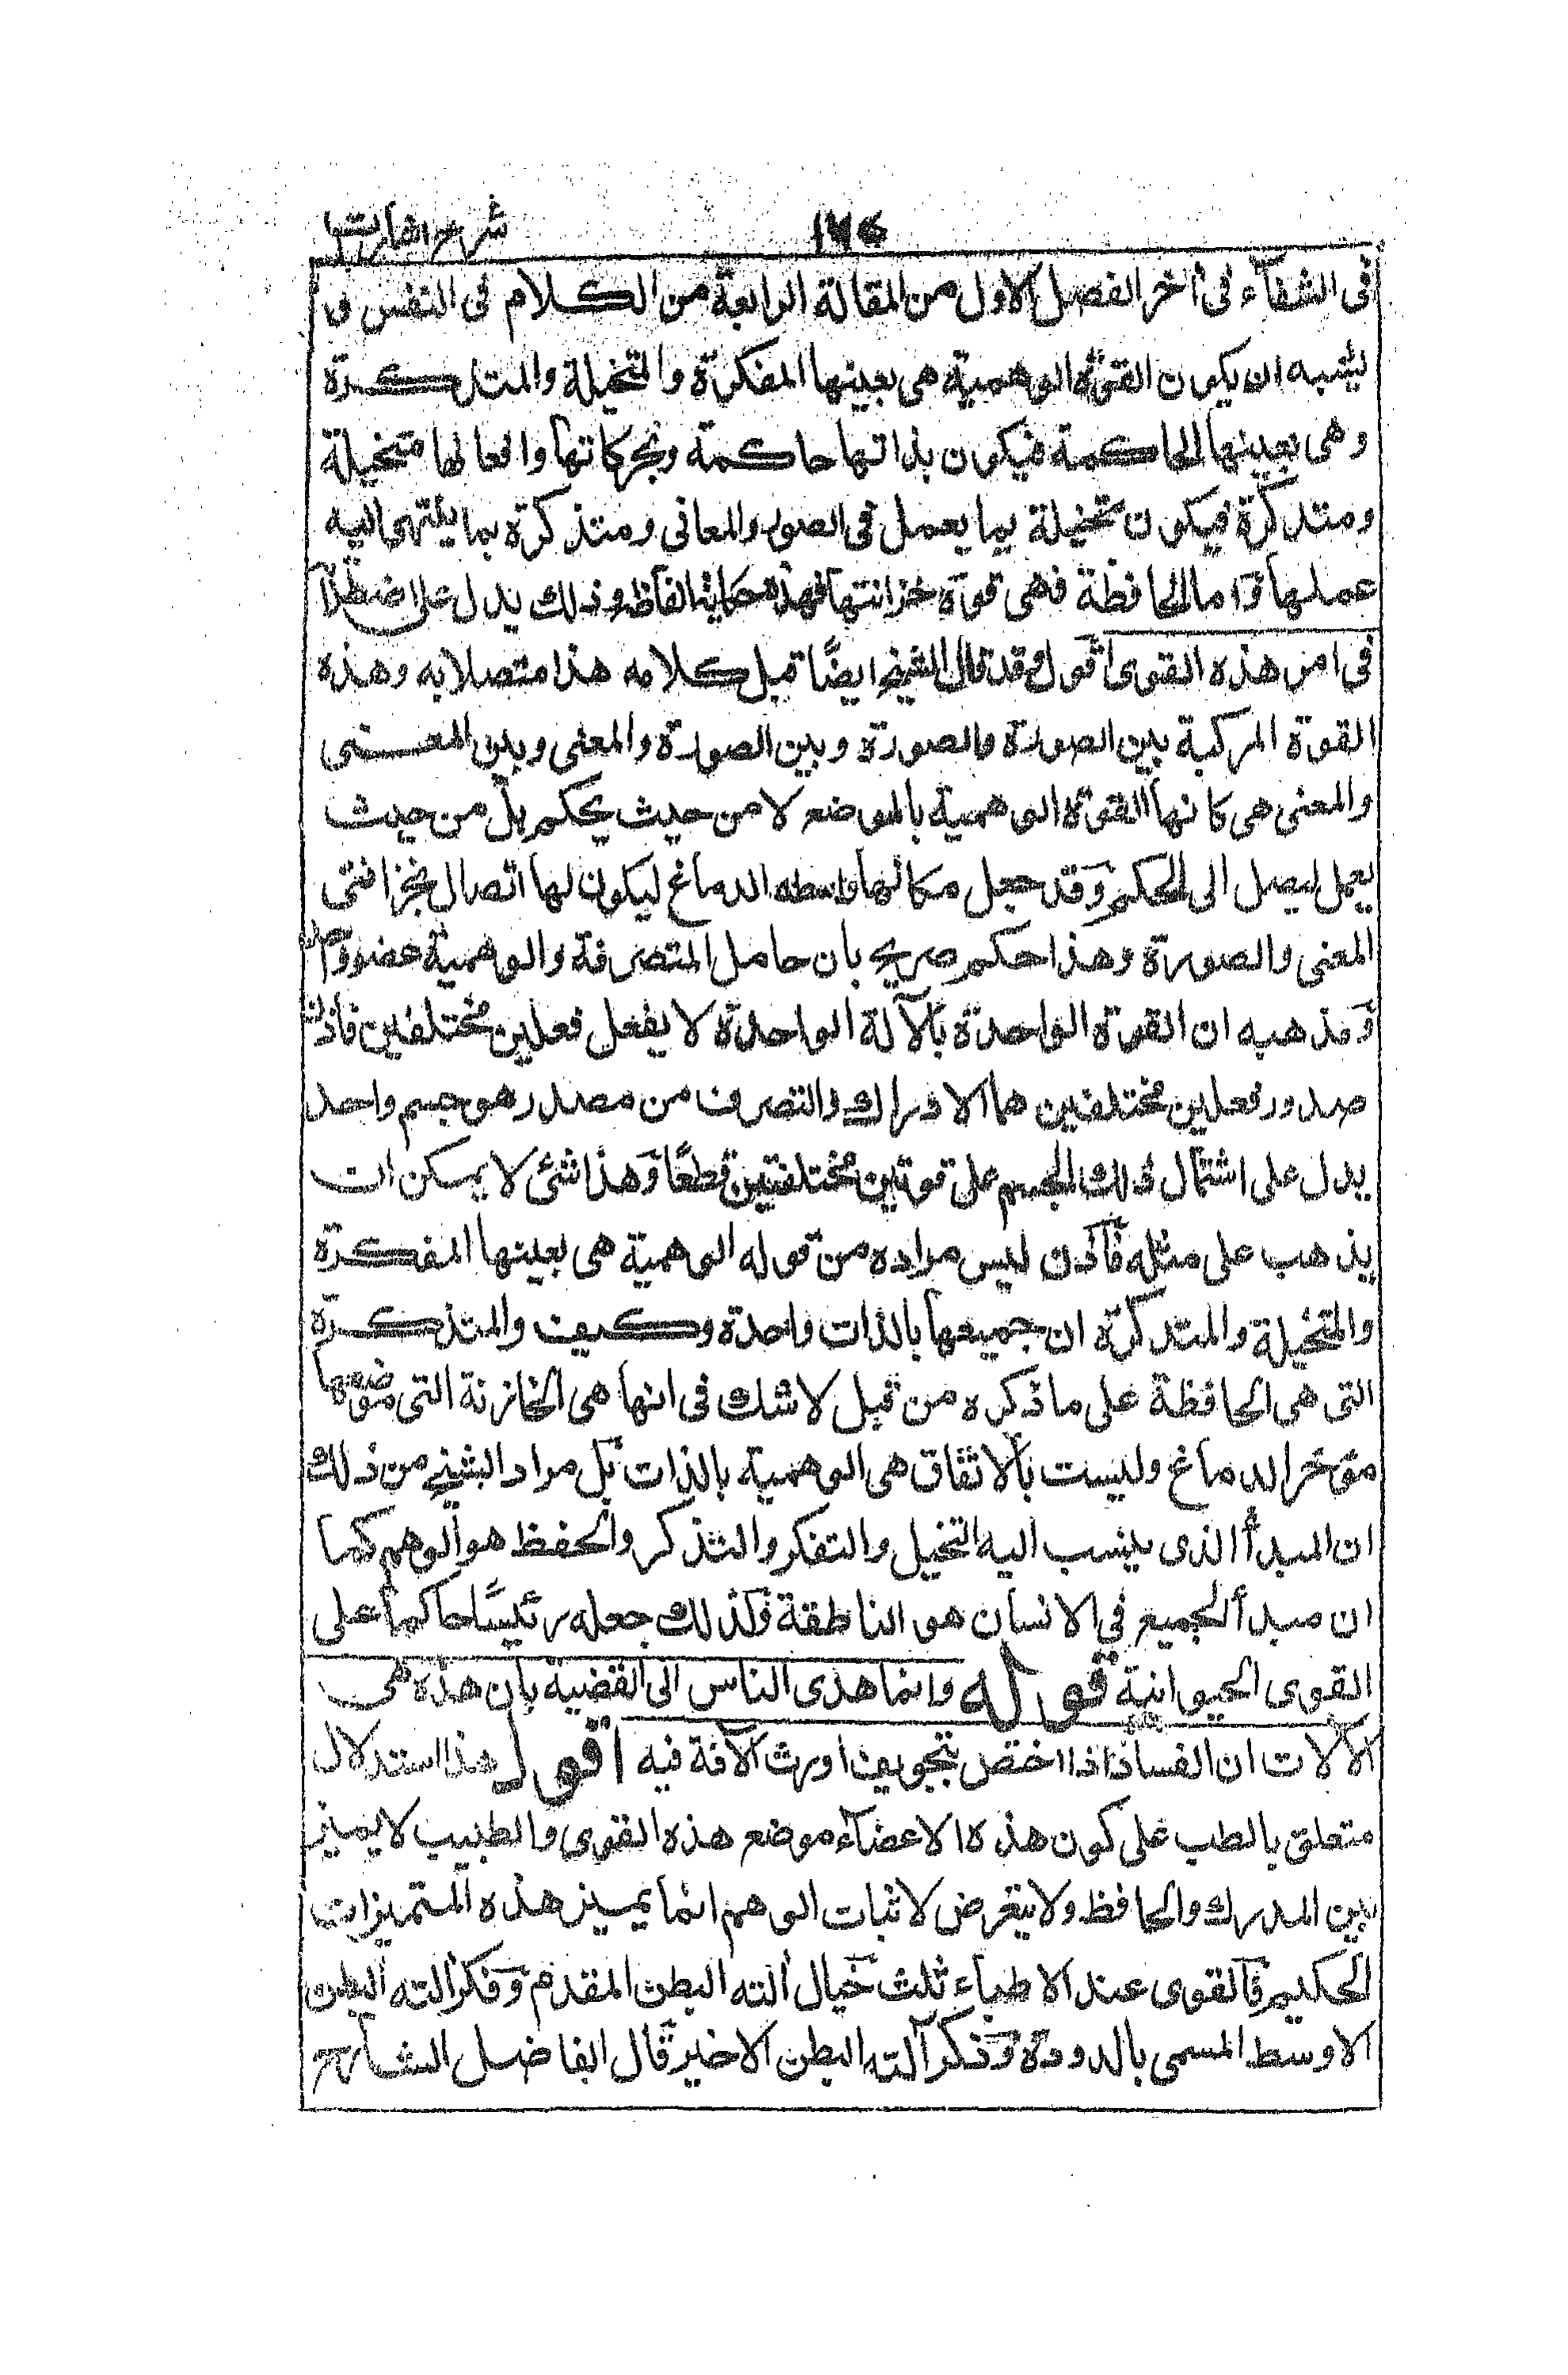 شرح اشارات
فى الشفآء فى اخر الفصل الاول من المقالة الرابعة من الكلام فى النفس و
يشبه ان يكون القوة الوهمية هى بعينها المفكرة والمتخيلة والمتذكرة
وهى بعينها الحاكمة فيكون بذاتها حاكمة وبحركاتها وافعالها متخيلة
ومتذكرة فيكون متخيلة بما يعمل فى الصور والمعانى ومتذكرة بما ينتهى اليه
عملها واما الحافظة فهى قوة خزانتها فهذه حكاية الفاظه وذلك يدل على اضطرابه
فى امر هذه القوى اقول وقد قال الشيخ ايضًا قبل كلامه هذا متصلا به وهذه
القوة المركبة بين الصورة والصورة وبين الصورة والمعنى وبين المعنى
والمعنى هى كانها القوة الوهمية بالموضع لا من حيث يحكم بل من حيث
يعمل ليصل الى الحكم وقد جعل مكانها واسطه الدماغ ليكون لها اتصال بخزانتى
المعنى والصورة وهذا حكم صريح بان حامل المتصرفة والوهمية عضو واحد
ومذهبه ان القوة الواحدة بالآلة الواحدة لا يفعل فعلين مختلفين فاذن
صدور فعلين مختلفين هما الادراك والتصرف من مصدر هو جسم واحد
يدل على اشتمال ذلك الجسم على قوتين مختلفتين قطعًا وهذا شئ لا يمكن ان
يذهب على مثله فاذن ليس مراده من قوله الوهمية هى بعينها المفكرة
والمتخيلة والمتذكرة ان جميعها بالذات واحدة وكيف والمتذكرة
التى هى الحافظة على ما ذكره من قبل لا شك فى انها هى الخازنة التى موضعها
مؤخر الدماغ وليست بالاتفاق هى الوهمية بالذات بل مراد الشيخ من ذلك
ان المبدأ الذى ينسب اليه التخيل والتفكر والتذكر والحفظ هو الوهم كما
ان مبدأ الجميع في الانسان هو الناطقة وكذلك جعله رئيسًا حاكما على
القوى الحيوانية قوله وانما هدى الناس الى القضية بان هذه هى
الآلات ان الفساد اذا اختص بتجويف اورث الآفة فيه اقول هذا استدلال
متعلق بالطب على كون هذه الاعضآء موضع هذه القوى والطبيب لا يميز
بين المدرك والحافظ ولا يتعرض لاثبات الوهم انما يميز هذه المتميزات
الحكيم فالقوى عند الاطباء ثلث خيال آلته البطن المقدم وفكر آلته البطن
الاوسط المسمى بالدودة وذكر آلته البطن الاخير قال الفاضل الشارح